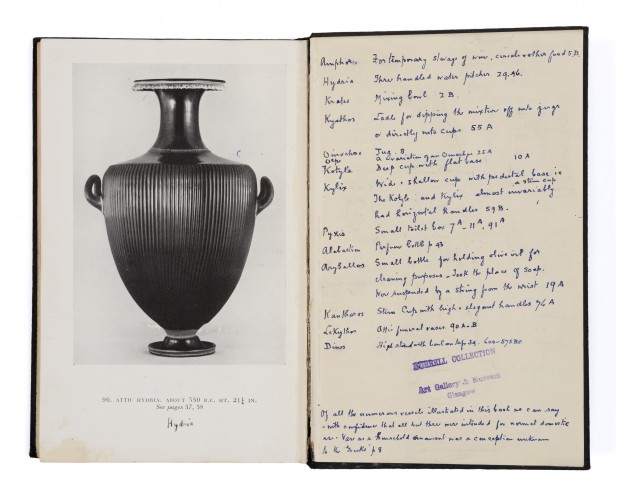 96. ATTIC HYDRIA. ABOUT 350 B.C. HT. 21¼ IN.
See pages 37, 39
Hydria
Amphora For temporary storage of wine, cereals & other food 5.D.
Hydria Three handled water pitcher 29.96.
Krater Mixing bowl 2 B.
Kyathos Ladle for dipping the mixture off into jugs
or directly into cups 55 A
Oinochoe Jug. 8
Olpe a variation of an Oinochoe 25 A
Kotyle Deep cup with flat base 10 A
Kylix Wide & shallow cup with pedestal base ie
a stem cup
The Kotyle and Kylix almost invariably
had horizontal handles 59 B.
Pyxis Small toilet box 7A - 11A, 91A
Alabastron Perfume bottle p 43
Aryballos Small bottle for holding olive oil for
cleaning purposes - Took the place of soap.
suspended by a string from the wrist 19 A
Kantharos Stem Cup with high & elegant handles 76 A
Lekythos Attic funeral vases 90 A-B
Dinos High stand with bowl on top
BURRELL COLLECTION
Art Gallery & Museum
Glasgow
"Of all the numerous vessels illustrated in this book we can say
with confidence that all but three were intended for normal domestic
use. Vase as a household ornament was a conception unknown
to the Greeks" p 8